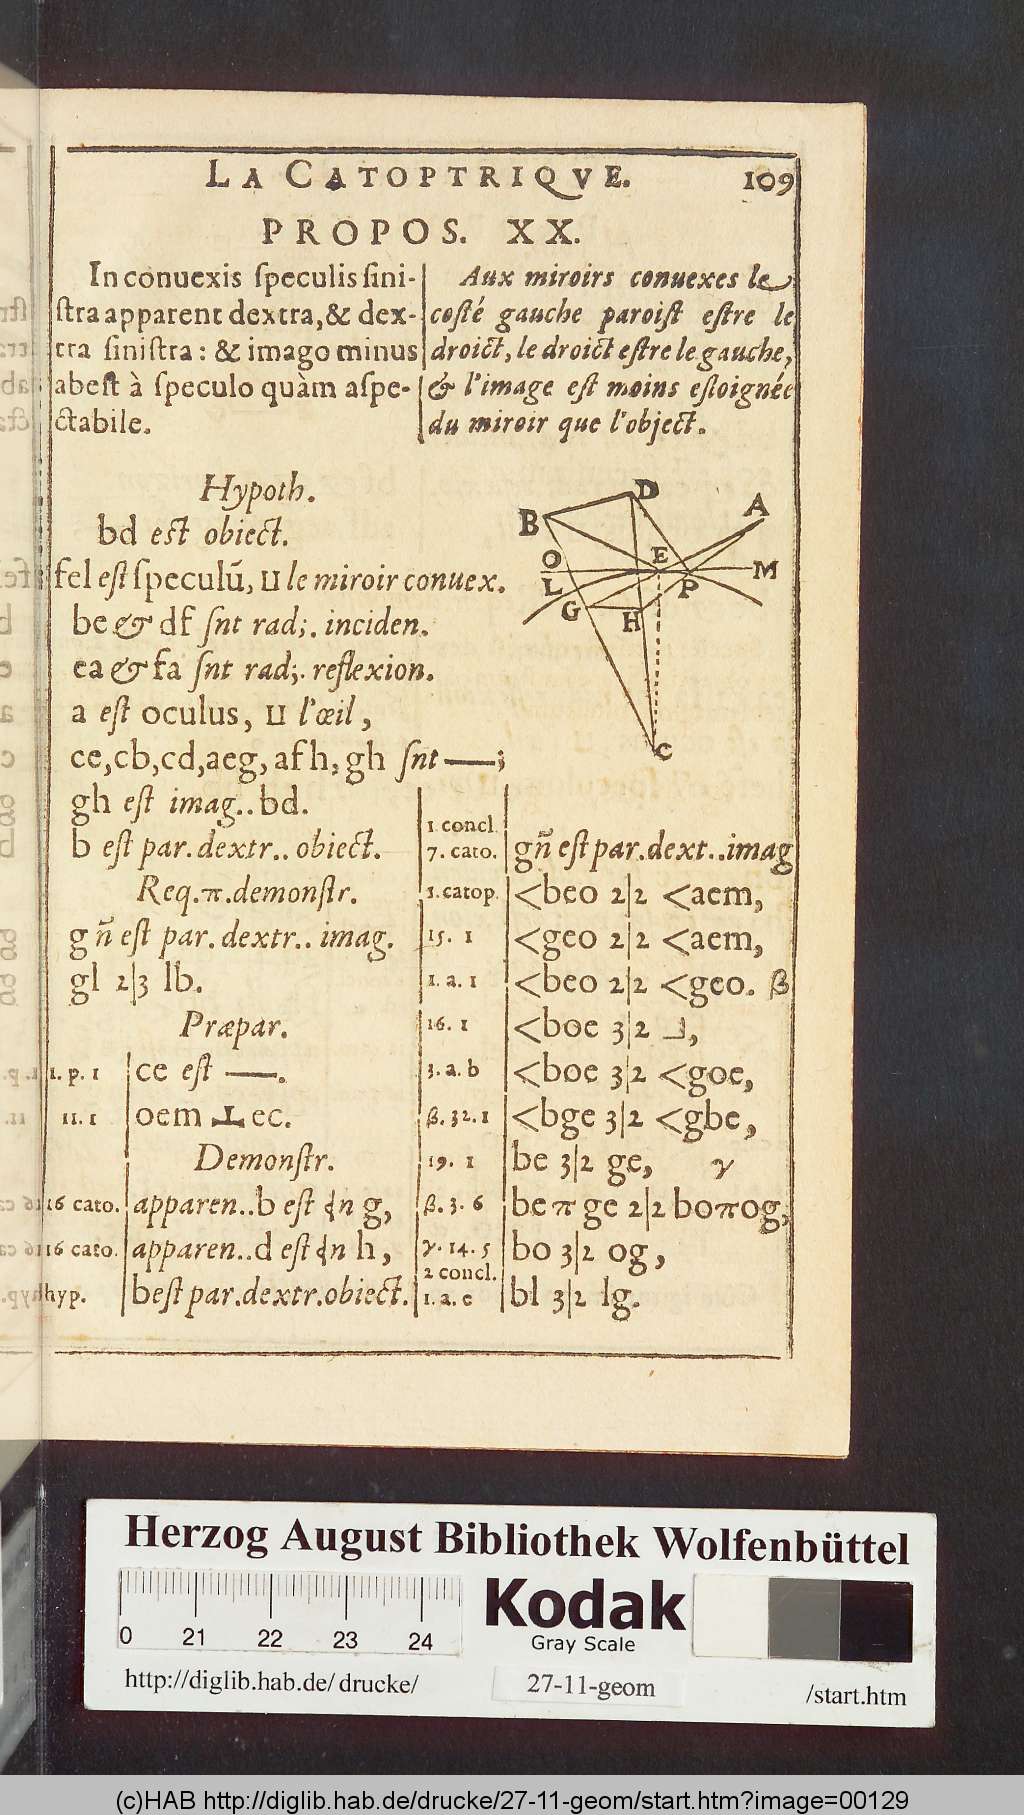 LA CATOPTRIQVE. 109
PROPOS. XX.
In conuexis ſpeculis ſini-
ſtra apparent dextra, & dex-
tra ſiniſtra: & imago minus
abeſt à ſpeculo quàm aſpe-
ctabile.
Aux miroirs conuexes le
coſté gauche paroiſt eſtre le
droict, le droict eſtre le gauche,
& l'image eſt moins eſloignée
du miroir que l'object.
Hypoth.
bd eſt obiect.
fel eſt ſpeculũ, ⊔ le miroir conuex.
be & df ſnt rad;. inciden.
ea & fa ſnt rad;. reflexion.
a eſt oculus, ⊔ l'œil,
ce, cb, cd, aeg, afh, gh ſnt —;
gh eſt imag.. bd.
b eſt par. dextr.. obiect.
Req. π. demonſtr.
gñ eſt par. dextr.. imag.
gl 2|3 lb.
Præpar.
1. p. 1 ce eſt —.
11. 1 oem ⊥ ec.
Demonſtr.
16 cato. apparen.. b eſt g,
16 cato. apparen.. d eſt h,
hyp. b eſt par. dextr. obiect.
D
B
A
O
E
M
L
P
G
H
C
1 concl.
7. cato. gñ eſt par. dext.. imag
1. catop. <beo 2|2 <aem,
15. 1 <geo 2|2 <aem,
1. a. 1 <beo 2|2 <geo. β
16. 1 <boe 3|2 ⅃,
3. a. b <boe 3|2 <goe,
β. 32. 1 <bge 3|2 <gbe,
19. 1 be 3|2 ge, γ
β. 3. 6 be π ge 2|2 bo π og,
γ. 14. 5 bo 3|2 og,
2 concl.
1. a. c bl 3|2 lg.
Herzog August Bibliothek Wolfenbüttel
0 21 22 23 24
Kodak
Gray Scale
http://diglib.hab.de/drucke/ 27-11-geom /start.htm
(c)HAB http://diglib.hab.de/drucke/27-11-geom/start.htm?image=00129